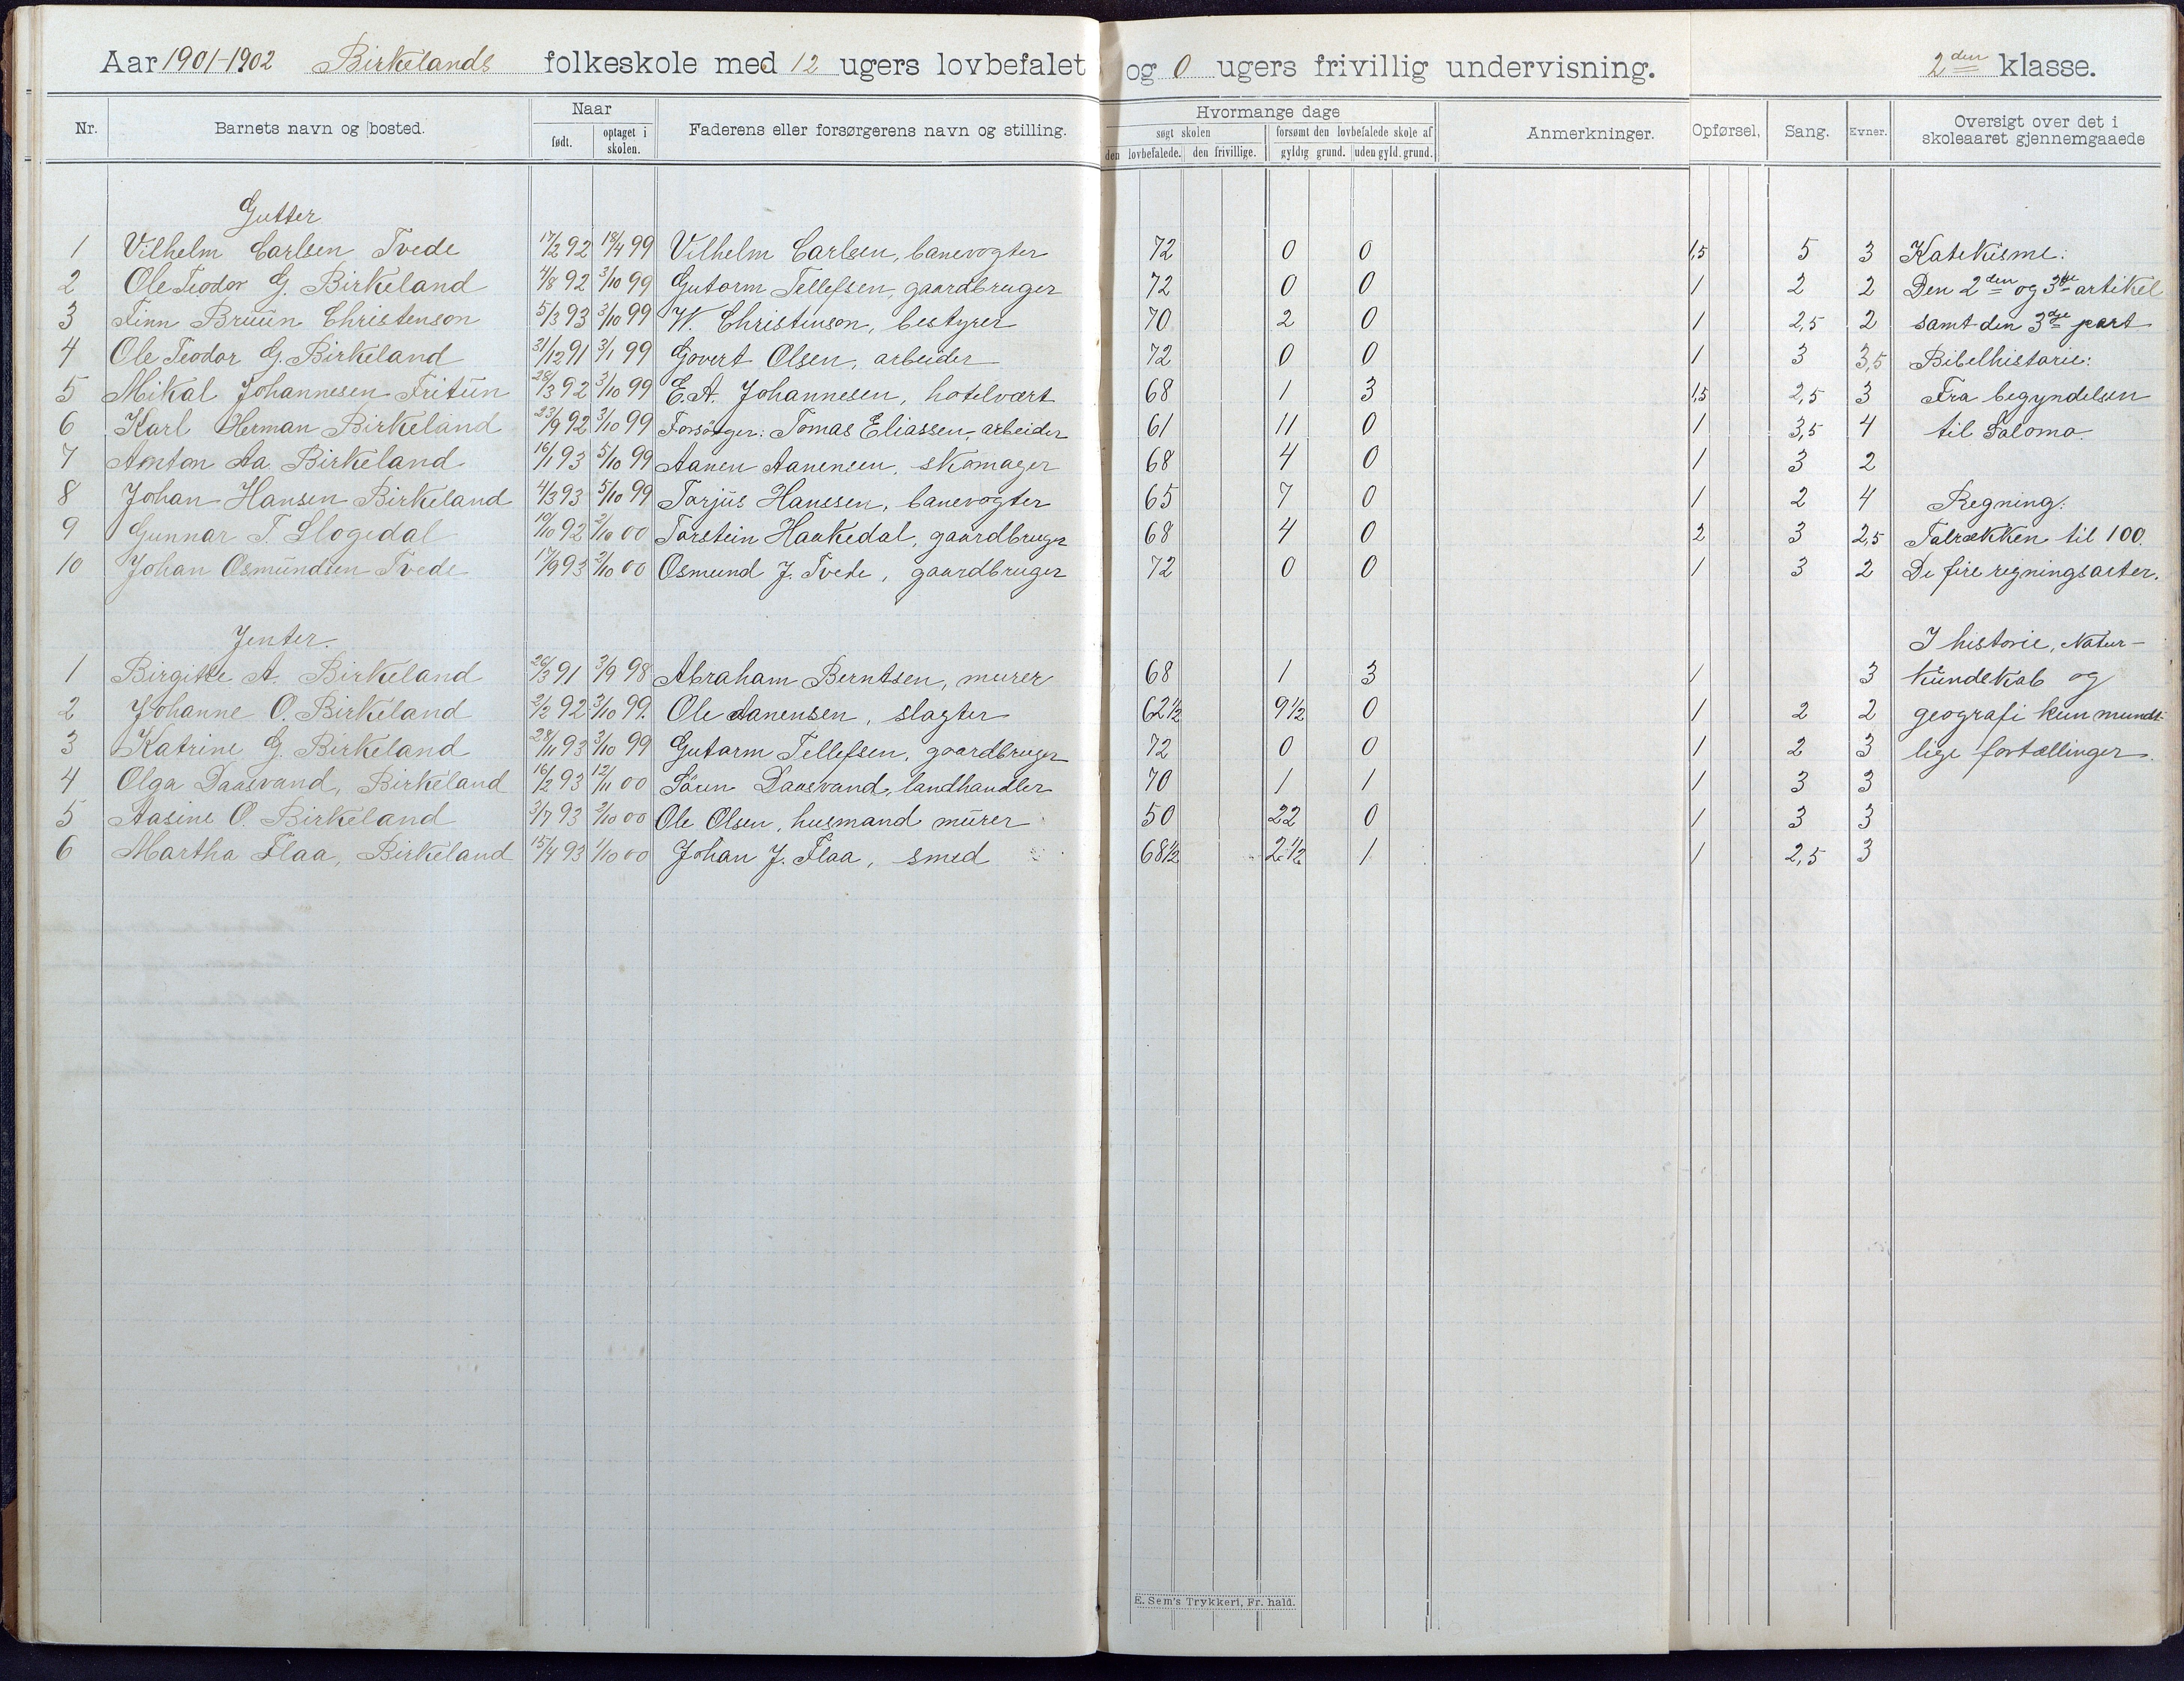 Aar 1901-1902 Birkelands folkeskole med 12 ugers lovbefalet og 0 ugers frivillig undervisning. 2den klasse.
Nr. Barnets navn og bosted. Naar født. optaget i skolen. Faderens eller forsørgerens navn og stilling. Hvormange dage søgt skolen den lovbefalede. den frivillige. forsømt den lovbefalede skole af gyldig grund. uden gyld. grund. Anmerkninger. Opførsel, Sang. Evner. Oversigt over det i skoleaaret gjennemgaaede
Gutter
1 Vilhelm Carlsen Tvede 17/2 92 18/4 99 Vilhelm Carlsen, banevogter 72 0 0 1,5 5 3 Katekisme:
2 Ole Teodor G. Birkeland 4/8 92 3/10 99 Gutorm Tellefsen, gaardbruger 72 0 0 1 2 2 Den 2den og 3die artikel
3 Finn Bruun Christenson 5/3 93 3/10 99 W. Christenson, bestyrer 70 2 0 1 2,5 2 samt den 3die part
4 Ole Teodor G. Birkeland 31/12 91 3/1 99 Govert Olsen, arbeider 72 0 0 1 3 3,5 Bibelhistorie:
5 Mikal Johannesen Fritun 28/3 92 3/10 99 E. A. Johannesen, hotelvært 68 1 3 1,5 2,5 3 Fra begyndelsen
6 Karl Herman Birkeland 23/9 92 3/10 99 Forsörger: Tomas Eliassen, arbeider 61 11 0 1 3,5 4 til Salomo.
7 Anton Aa. Birkeland 16/1 93 5/10 99 Aanen Aanensen, skomager 68 4 0 1 3 2
8 Johan Hansen Birkeland 4/3 93 5/10 99 Torjus Hanssen, banevogter 65 7 0 1 2 4 Regning:
9 Gunnar T. Slogedal 19/10 92 2/10 00 Torstein Haakedal, gaardbruger 68 4 0 2 3 2,5 Talrækken til 100.
10 Johan Osmundsen Tvede 17/9 93 2/10 00 Osmund J. Tvede, gaardbruger 72 0 0 1 3 2 De fire regningsarter.
Jenter. I historie, Natur-
1 Birgitte A. Birkeland 26/3 91 3/9 98 Abraham Berntsen, murer 68 1 3 1 3 kundskab og
2 Johanne O. Birkeland 2/2 92 3/10 99. Ole Aanensen, slagter 62½ 9½ 0 1 2 2 geografi kun mundt-
3 Katrine G. Birkeland 28/11 93 3/10 99 Gutorm Tellefsen, gaardbruger 72 0 0 1 2 3 lige fortællinger.
4 Olga Daasvand, Birkeland 16/2 93 12/11 00 Sören Daasvand, landhandler 70 1 1 1 3 3
5 Aasine O. Birkeland 3/7 93 2/10 00 Ole Olsen, husmand murer 50 22 0 1 3 3
6 Martha Flaa, Birkeland 15/4 93 1/10 00 Johan J. Flaa, smed 68½ 2½ 1 1 2,5 3
E. Sem's Trykkeri, Fr. hald.